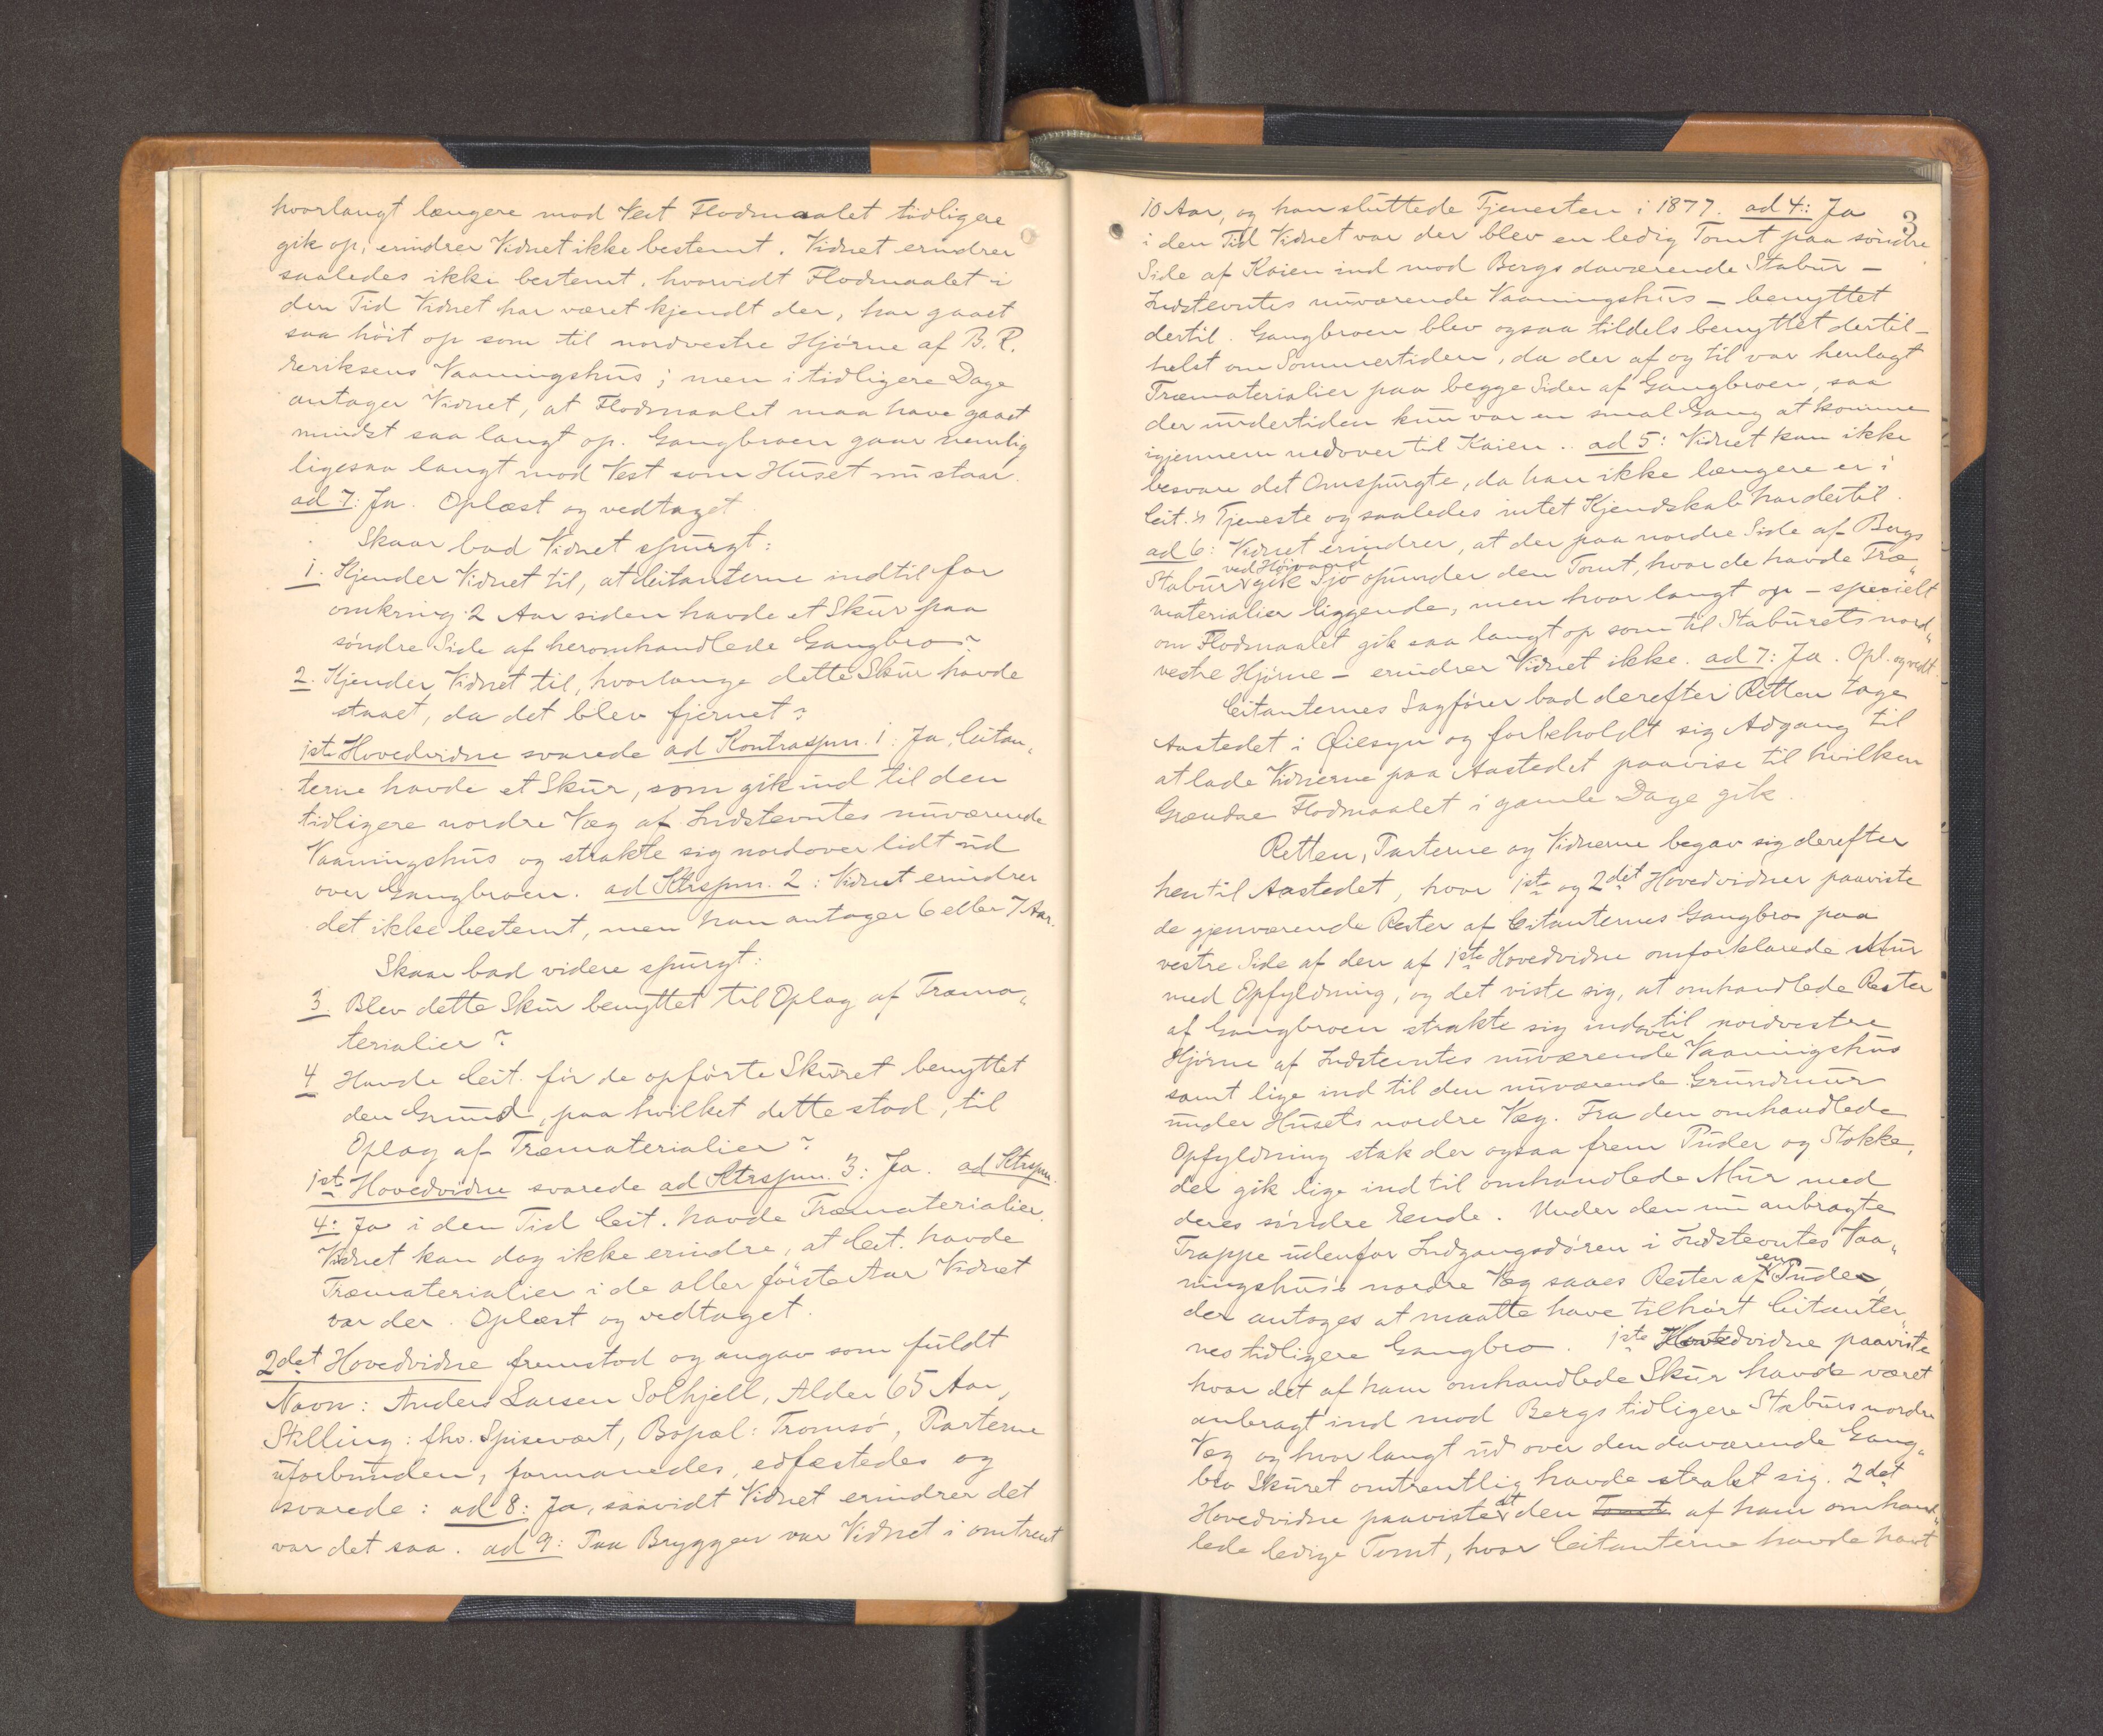 hvorlangt længere mod Vest Flodmaalet tidligere
gik op, erindrer Vidnet ikke bestemt. Vidnet erindrer
saaledes ikke bestemt, hvorvidt Flodmaalet i
den Tid Vidnet har været kjendt der, har gaaet
saa höit op som til nordvestre Hjørne af B. R.
Eeriksens Vaaningshus; men i tidligere Dage
antager Vidnet, at Flodmaalet maa have gaaet
mindst saa langt op. Gangbroen gaar nemlig
ligesaa langt mod Vest som Huset nu staar.
ad 7: Ja. Oplæst og vedtaget
Skaar bad Vidnet spurgt:
1. Kjender Vidnet til, at Citanterne indtil for
omkring 2 Aar siden havde et Skur paa
søndre Side af heromhandlede Gangbro?
2. Kjender Vidnet til, hvorlænge dette Skur havde
staaet, da det blev fjernet?
1ste Hovedvidne svarede ad Kontraspm. 1: Ja, Citan„
terne havde et Skur, som gik ind til den
tidligere nordre Væg af Indstevntes nuværende
Vaaningshus og strakte sig nordover lidt ud
over Gangbroen. ad Ktrspm. 2: Vidnet erindrer
det ikke bestemt, men han antager 6 eller 7 Aar.
Skaar bad videre spurgt:
3. Blev dette Skur benyttet til Oplag af Træma„
terialier?
4 Havde Cit. før de opførte Skuret benyttet
den Grund, paa hvilket dette stod, til
Oplag af Træmaterialier?
1ste Hovedvidne svarede ad Ktrspm. 3: Ja. ad Ktrspm.
4: Ja i den Tid Cit. havde Træmaterialier.
Vidnet kan dog ikke erindre, at Cit. havde
Træmaterialier i de aller første Aar Vidnet
var der. Oplæst og vedtaget.
2det Hovedvidne fremstod og angav som fuldt
Navn: Anders Larsen Solhjell, Alder 65 Aar,
Stilling: fhv. Spisevært, Bopæl: Tromsø, Parterne
uforbunden, formanedes, edfæstedes og
svarede: ad 8: Ja, saavidt Vidnet erindrer det
var det saa. ad 9: Paa Bryggen var Vidnet i omtrent
3
10 Aar, og han sluttede Tjenesten i 1877. ad 4: Ja
i den Tid Vidnet var der blev en ledig Tomt paa søndre
Side af Kaien ind mod Bergs daværende Stabur –
Indstevntes nuværende Vaaningshus – benyttet
dertil. Gangbroen blev ogsaa tildels benyttet dertil –
helst om Sommertiden, da der af og til var henlagt
Træmaterialier paa begge Sider af Gangbroen, saa
der undertiden kun var en smal Gang at komme
igjennem nedover til Kaien. ad 5: Vidnet kan ikke
besvare det Omspurgte, da han ikke længere er i
Cit.'s Tjeneste og saaledes intet Kjendskab har dertil.
ad 6: Vidnet erindrer, at der paa nordre Side af Bergs
ved Høivand
Stabur gik Sjø opunder den Tomt, hvor de havde Træ„
materialier liggende, men hvor langt op – specielt
om Flodmaalet gik saa langt op som til Staburets nord„
vestre Hjørne – erindrer Vidnet ikke. ad 7: Ja. Opl. og vedt.
Citanternes Sagfører bad derefter Retten tage
Aastedet i Øiesyn og forbeholdt sig Adgang til
at lade Vidnerne paa Aastedet paavise til hvilken
Grændse Flodmaalet i gamle Dage gik.
Retten, Parterne og Vidnerne begav sig derefter
hen til Aastedet, hvor 1ste og 2det Hovedvidner paaviste
de gjenværende Rester af Citanternes Gangbro paa
vestre Side af den af 1ste Hovedvidne omforklarede Mur
med Opfyldning, og det viste sig, at omhandlede Rester
af Gangbroen strakte sig indover til nordvestre
Hjørne af Indstevntes nuværende Vaaningshus
samt lige ind til den nuværende Grundmur
under Husets nordre Væg. Fra den omhandlede
Opfyldning stak der ogsaa frem Puder og Stokke,
der gik lige ind til omhandlede Mur med
deres søndre Ende. Under den nu anbragte
Trappe udenfor Indgangsdøren i Indstevntes Vaa„
ningshus's nordre Væg saaes Rester af en Pude,
der antoges at maatte have tilhørt Citanter„
nes tidligere Gangbro. 1ste Hovedvidne paaviste
hvor det af ham omhandlede Skur havde været
anbragt ind mod Bergs tidligere Staburs nordre
Væg og hvor langt ud over den daværende Gang„
bro Skuret omtrentlig havde strakt sig. 2det
Hovedvidne paaviste at den Tomt af ham omhand„
lede ledige Tomt, hvor Citanterne havde havt